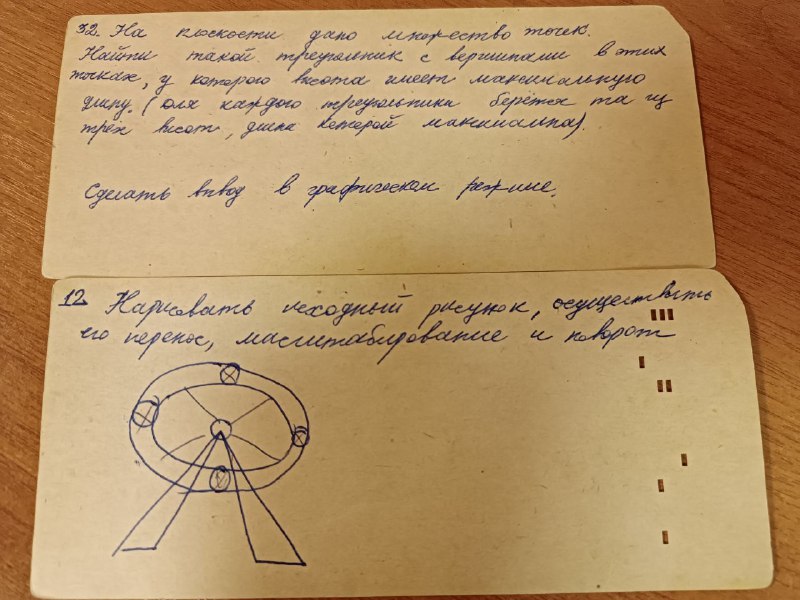 32. На плоскости дано множество точек.
Найти такой треугольник с вершинами в этих
точках, у которого высота имеет максимальную
длину. (для каждого треугольника берётся та из
трёх высот, длина которой максимальна).
Сделать вывод в графическом режиме.
12 Нарисовать исходный рисунок, осуществить
его перенос, масштабирование и поворот